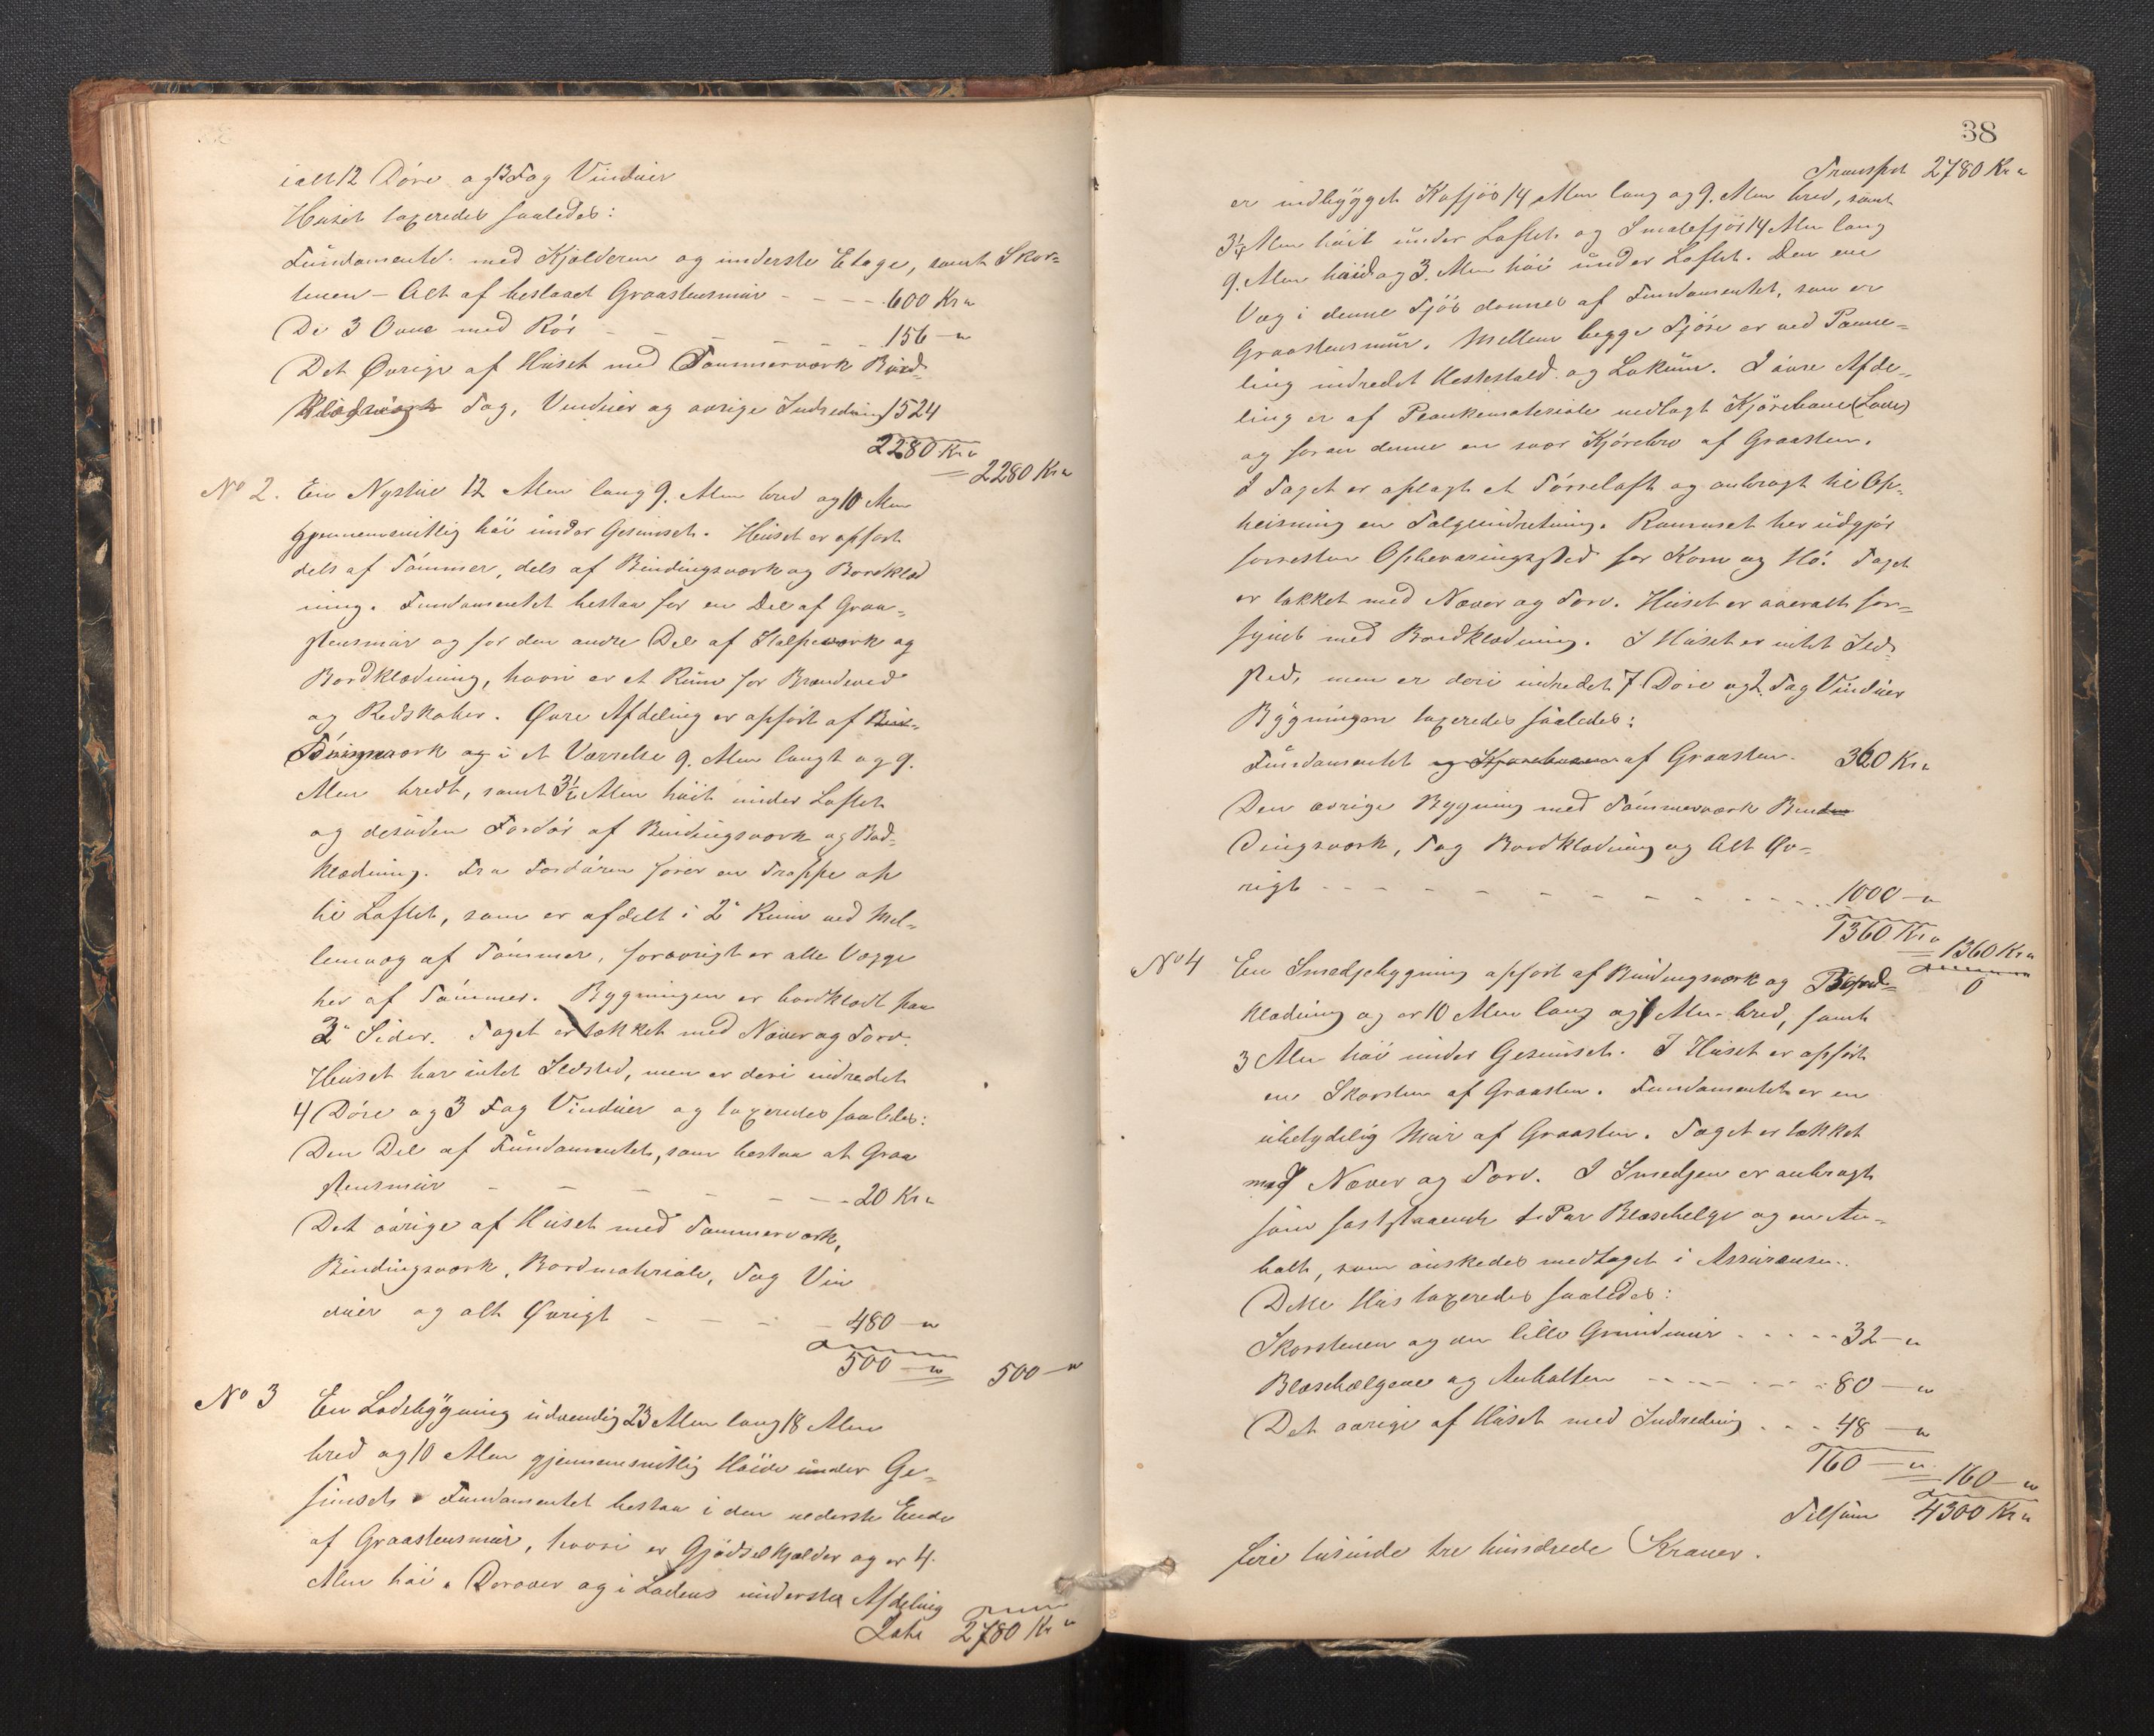 ialt 12 Döre og 13 Fag Vinduer
Huset taxeredes saaledes:
Fundamentet med Kjælderen og underste Etage, samt Skor-
stenen – Alt af bestaaet Graastensmur - - - - 600 Kr "
De 3 Ovne med Rör - - - - - 156 — "
Det Øvrige af Huset med Tømmerværk Bord-
klædning Tag, Vinduer og øvrige Indredning 1524
2280 Kr "
2280 Kr "
No 2. En Nystue 12 Alen lang 9. Alen bred og 10 Alen
gjennemsnitlig höi under Gesimset. Huset er opfört
dels af Tömmer, dels af Bindingsværk og Bordklæd
ning. Fundamentet bestaar for en Del af Graa-
stensmur og for den andre Del af Stolpeværk og
Bordklædning, hvori er et Rum for Brændeved
og Redskaber. Øvre Afdeling er opfört af
Tömmerværk og i et Værrelse 9. Alen langt og 9.
Alen bredt, samt 3½ Alen höit under Loftet
og desuden Fordör af Bindingsværk og Bord-
klædning. Fra Fordören förer en Trappe op
til Loftet, som er afdelt i 2 Rum ved Mel-
lemvæg af Tömmer, forövrigt er alle Vægge
her af Tömmer. Bygningen er bordklædt paa
3 Sider. Taget er tækket med Næver og Torv.
Huset har intet Ildsted, men er deri indredet
4 Döre og 3 Fag Vinduer og taxeredes saaledes:
Den Del af Fundamentet, som bestaar af Graa
stensmur - - - - - - - 20 Kr "
Det övrige af Huset med Tømmerværk,
Bindingsværk, Bordmateriale, Tag Vin
duer og alt Øvrigt - - - - 480 — "
500 — " 500 — "
No 3 En Ladebygning udvendig 23 Alen lang 18 Alen
bred og 10 Alen gjennemsnitlig Höide under Ge-
simset. Fundamentet bestaar i den nederste Ende
af Graastensmur, hvori er Gjödselkjælder og er 4.
Alen höi. Derover og i Ladens underste Afdeling
Late 2780 Kr "
38
Transport 2780 Kr "
er indbygget Kofjös 14 Alen lang og 9. Alen bred, samt
3¼ Alen höit under Loftet og Smalefjös 14 Alen lang
9. Alen bred og 3. Alen höi under Loftet. Den ene
Væg i denne Fjös dannes af Fundamentet, som er
Graastensmur. Mellem begge Fjöse er ved Panne-
ling indredet Hestestald og Lokum. I övre Afde-
ling er af Plankemateriale nedlagt Kjörebane (Lave)
og foran denne en svær Kjörebro af Graasten.
I Taget er oplagt et Törreloft og anbragt til Op-
heisning en Talgeindretning. Rummet her udgjör
forresten Opbevaringssted for Korn og Hö. Taget
er tækket med Næver og Torv. Huset er overalt for-
synet med Bordklædning. I Huset er intet Ild-
sted, men er deri indredet 7 Döre og 2 Fag Vinduer
Bygningen taxeredes saaledes:
Fundamentet og Kjörebroen af Graasten. 360 Kr "
Den övrige Bygning med Tömmerværk Bin
dingsværk, Tag Bordklædning og Alt Øv-
rigt - - - - - - - - 1000 — "
1360 Kr "
1360 Kr "
No 4 En Smedjebygning opfört af Bindingsværk og Bord-
klædning og er 10 Alen lang og Alen bred, samt
3 Alen höi under Gesimset. I Huset er opfört
en Skorsten af Graasten. Fundamentet er en
ubetydelig Mur af Graasten. Taget er tækket
med Næver og Torv. I Smedjen er anbragt
som faststaaende 1 Par Blæsebelge og en Am-
bolt, som önskedes medtaget i Assurancen.
Dette Hus taxeredes saaledes:
Skorstenen og den lille Grundmur - - - - 32 — "
Blæsebælgene og Ambolten - - - - - 80 — "
Det övrige af Huset med Indredning - - - 48 — "
160 — "
160 — "
Tilsum 4300 Kr "
fire tusinde tre hundrede Kroner.